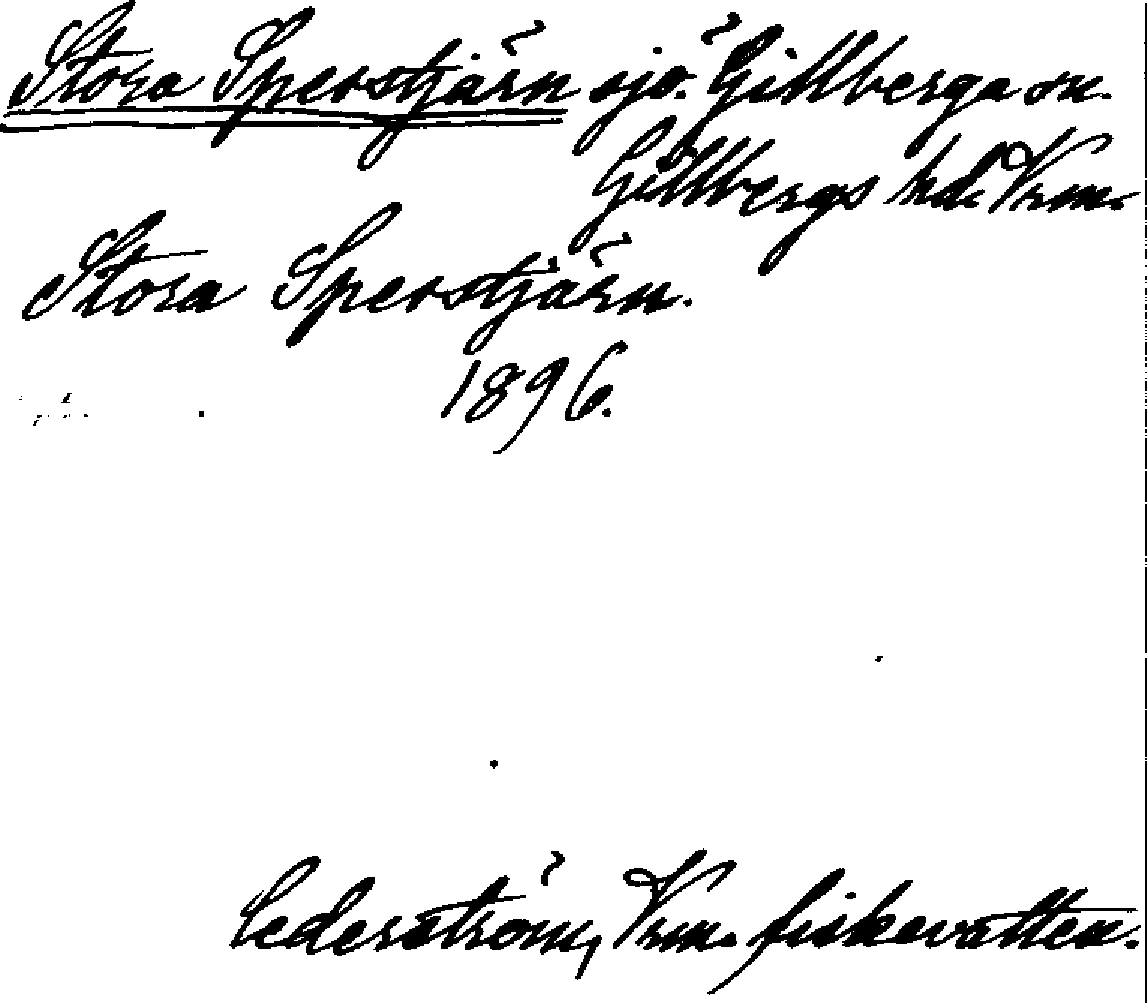 Stora Sperstjärn sjö. Gillberga sn.
Gillbergs hd. Vrm.
Stora Sperstjärn.
1896.
Cederström, Vrm. fiskevatten.